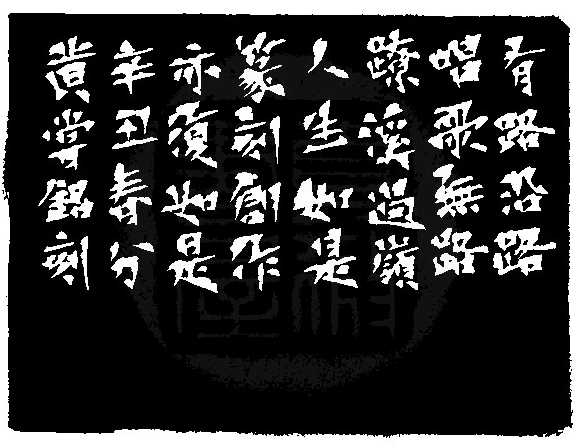 有路沿路
唱歌無路
蹽溪過嶺
人生如是
篆刻創作
亦復如是
辛丑春分
黃嘗銘刻